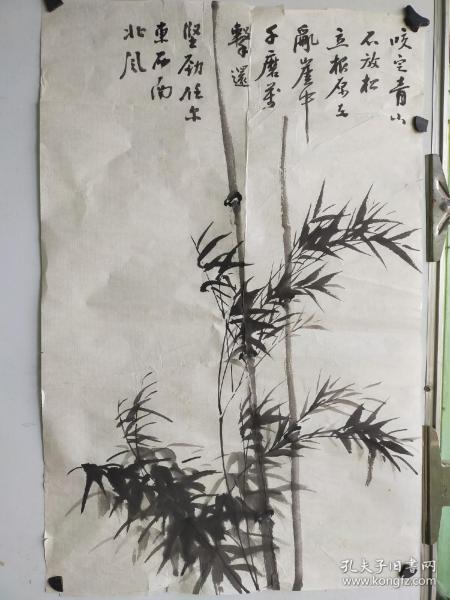 咬定青山
不放松
立根原在
亂崖中
千磨萬
擊還
堅勁任尔
東西南
北風
孔夫子旧书网
www.kongfz.com